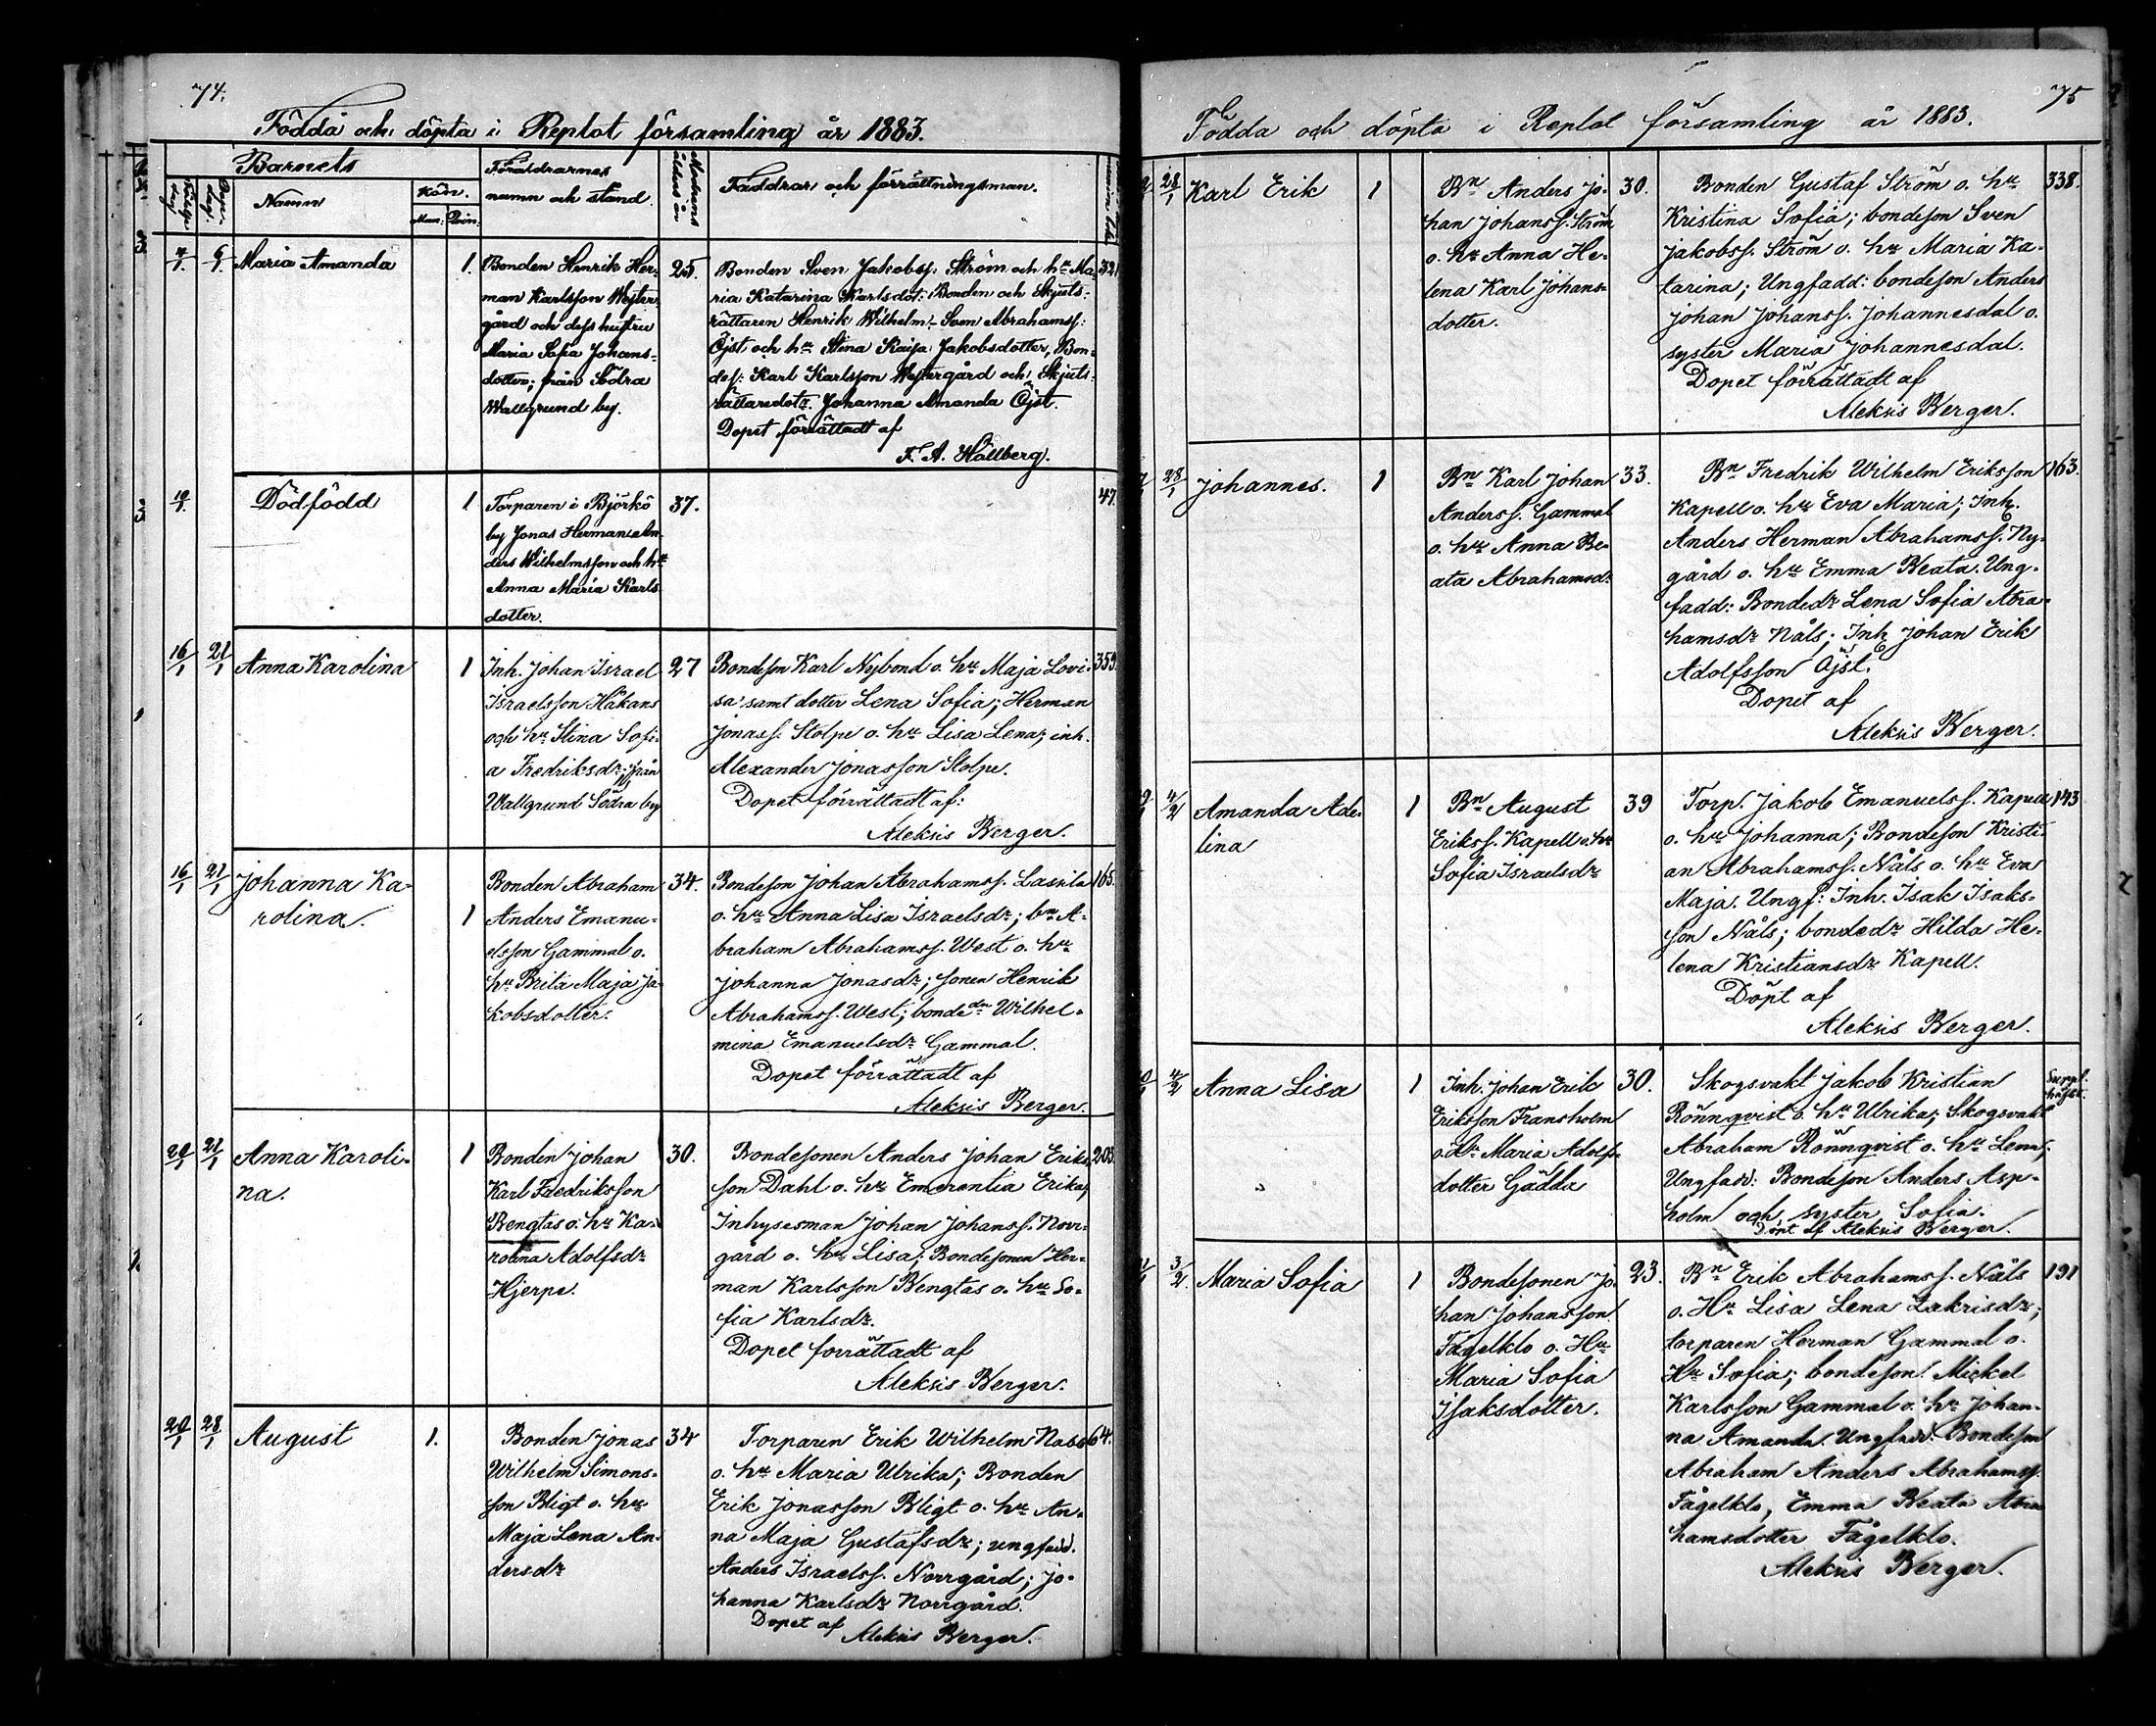 74.
Födda och döpta i Replot församling år 1883.
Barnets
Namn
Kön.
Man. Qvin.
Föräldrarnes
namn och stånd
Moderns
ålders år
Faddrar och förrättningsman.
4/1. 6/1 Maria Amanda 1. 25. 321
Bonden Henrik Her-
man Karlsson Wester
gård och dess hustru
Maria Sofia Johans-
dotter; från Södra
Wallgrund by.
Bonden Sven Jakobss: Ström och hu Ma-
ria Katarina Karlsdot: Bonden och Skjuts-
rättaren Henrik Wilhelm Sven Abrahamss:
Öjst och hu Stina Kaisa Jakobsdotter, Bon-
des: Karl Karlsson Westergård och Skjuts-
rättaredotr. Johanna Amanda Öjst.
Dopet förrättadt af
F. A. Hällberg.
10/1. Dödfödd 1 37. 47.
Torparen i Björkö
by Jonas Herman An-
ders Wilhelmsson och hu
Anna Maria Karls
dotter.
16/1 21/1 Anna Karolina 1 27 359.
Inh. Johan Israel
Israelsson Håkans
och hu Stina Sofi-
a Fredriksdr; från
Wallgrund Södra by
Bondeson Karl Nybond o. hu Maja Lovi-
sa samt dotter Lena Sofia; Herman
Jonass. Stolpe o. hu Lisa Lena; inh.
Alexander Jonasson Stolpe.
Dopet förrättadt af:
Aleksis Berger.
16/1 21/1 Johanna Ka-
rolina. 1 34. 165.
Bonden Abraham
Anders Emanu-
elsson Gammal o.
hu Brita Maja Ja-
kobsdotter.
Bondeson Johan Abrahamss. Lassila
o. hu Anna Lisa Israelsdr; bn A-
braham Abrahamss. West o. hu
Johanna Jonasdr; sonen Henrik
Abrahamss. West; bondedn Wilhel-
mina Emanuelsdr Gammal.
Dopet förrättadt af
Aleksis Berger.
20/1 21/1 Anna Karoli-
na. 1 30. 203.
Bonden Johan
Karl Fredriksson
Bengtas o. hu Ka-
rolina Adolfsdr
Hjerpe.
Bondesonen Anders Johan Eriks
son Dahl o. hu Emerentia Erika;
Inhysesman Johan Johanss. Norr-
gård o. hu Lisa; Bondesonen Her-
man Karlsson Bengtas o. hu So-
fia Karlsdr.
Dopet förrättadt af
Aleksis Berger.
20/1 28/1 August 1. 34 64.
Bonden Jonas
Wilhelm Simons-
son Bligt o. hu
Maja Lena An-
dersdr
Torparen Erik Wilhelm Nabb
o. hu Maria Ulrika; Bonden
Erik Jonasson Bligt o. hu An-
na Maja Gustafsdr; ungfadd.
Anders Israelss. Norrgård; Jo-
hanna Karlsdr Norrgård.
Dopet af Aleksis Berger.
75
Födda och döpta i Replot församling år 1883.
28/1 Karl Erik 1 30. 338.
Bn Anders Jo-
han Johanss. Ström
o. hu Anna He-
lena Karl Johans-
dotter.
Bonden Gustaf Ström o. hu
Kristina Sofia; bondeson Sven
Jakobss. Ström o. hu Maria Ka-
tarina; Ungfadd: bondeson Anders
Johan Johanss. Johannesdal o.
syster Maria Johannesdal.
Dopet förrättadt af
Aleksis Berger.
28/1 Johannes. 1 33. 163.
Bn Karl Johan
Anderss. Gammal
o. hu Anna Be-
ata Abrahamsdr
Bn Fredrik Wilhelm Eriksson
Kapell o. hu Eva Maria; Inh.
Anders Herman Abrahamss. Ny-
gård o. hu Emma Beata. Ung-
fadd: Bondedr Lena Sofia Abra-
hamsdr Nåls; Inh. Johan Erik
Adolfsson Öjst.
Dopet af
Aleksis Berger.
4/2 Amanda Ade-
lina 1 39 143
Bn August
Erikss. Kapell o. hu
Sofia Israelsdr
Torp. Jakob Emanuelss. Kapell
o. hu Johanna; Bondeson Kristi-
an Abrahamss. Nåls o. hu Eva
Maja. Ungf: Inh. Isak Isaks-
son Nåls; bondedr Hilda He-
lena Kristiansdr Kapell.
Döpt af
Aleksis Berger.
4/2 Anna Lisa 1 30. Suppl.
häftet.
Inh. Johan Erik
Eriksson Fransholm
o. hu Maria Adolfs-
dotter Gädda
Skogsvakt Jakob Kristian
Rönnqvist o. hu Ulrika; Skogsvakt
Abraham Rönnqvist o. hu Lena;
Ungfadd: Bondeson Anders Asp-
holm och syster Sofia.
Döpt af Aleksis Berger.
3/2. Maria Sofia 1 23. 191
Bondesonen Jo-
han Johansson
Fågelklo o. Hu
Maria Sofia
Isaksdotter.
Bn Erik Abrahamss. Nåls
o. Hu Lisa Lena Zakrisdr;
torparen Herman Gammal o.
Hu Sofia; bondeson Mickel
Karlsson Gammal o. hu Johan-
na Amanda. Ungfadd: Bondeson
Abraham Anders Abrahamss.
Fågelklo, Emma Beata Abra
hamsdotter Fågelklo.
Aleksis Berger.